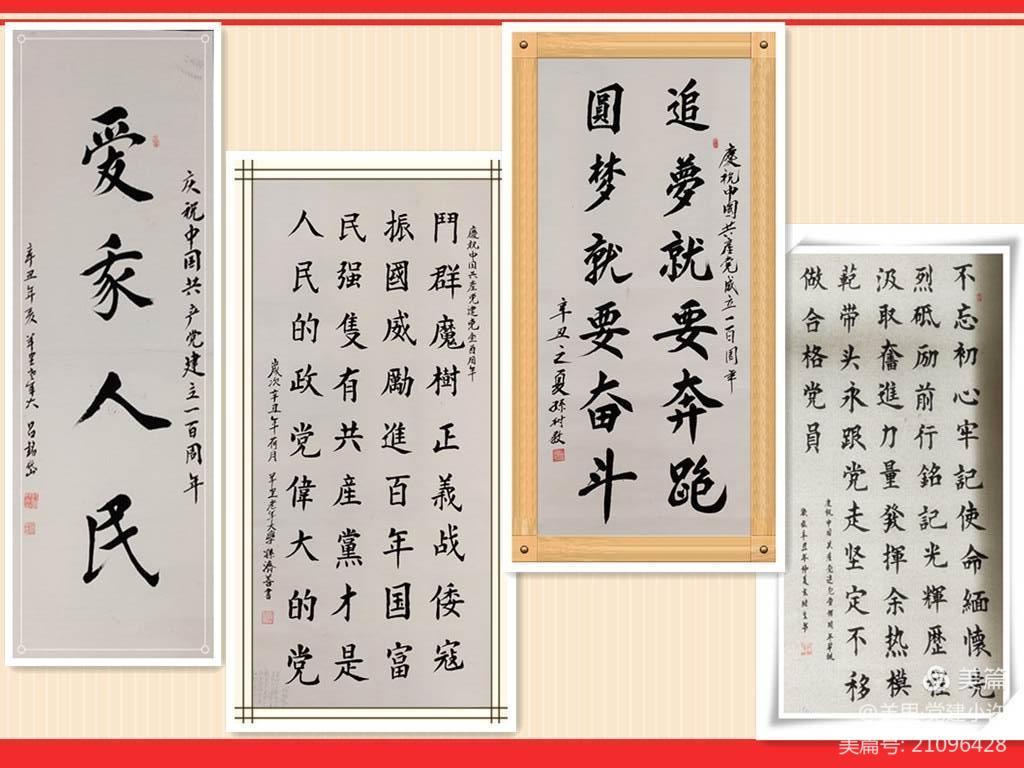 爱人民
庆祝中国共产党建立一百周年
辛丑年夏 羊里老年大 吕
慶祝中国共産党建党壹百周年
鬥群魔樹正義战倭寇
振國威勵進百年国富
民强隻有共産黨才是
人民的政党偉大的党
歲次辛丑年荷月 羊里老年大學 孫濟善書
慶祝中國共産党成立一百周年
追夢就要奔跑
圓梦就要奋斗
辛丑之夏孫村
不忘初心牢記使命緬懷先
烈砥励前行銘記光輝歷程
汲取奮進力量發揮余热模
範带头永跟党走坚定不移
做合格党員
慶祝中国共產党建党壹佰周年華誕
歲在辛丑年仲夏
美篇
@羊里·党建小许
美篇号: 21096428